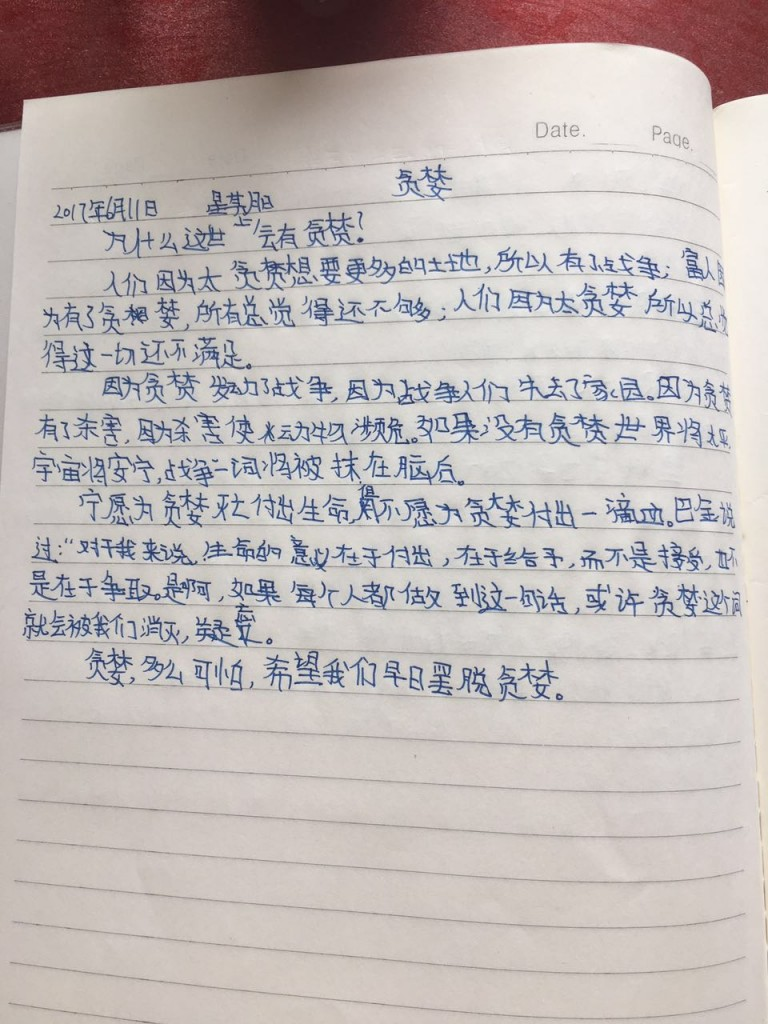 Date. Page.
贪婪
2017年6月11日 星期日
为什么这世上会有贪婪?
人们因为太贪婪想要更多的土地,所以有了战争;富人因
为有了贪婪,所有总觉得还不够多;人们因为太贪婪所以总觉
得这一切还不满足。
因为贪婪发动了战争,因为战争人们失去了家园。因为贪婪
有了杀害,因为杀害使动物濒危。如果没有贪婪世界将太平,
宇宙将安宁,战争一词将被抹在脑后。
宁愿为贪婪付出生命,不愿为贪婪付出一滴血。巴金说
过:“对于我来说,生命的意义在于付出,在于给予,而不是接受,也不
是在于争取。是啊,如果每个人都做到这一句话,或许贪婪这个词
就会被我们消灭,。
贪婪,多么可怕,希望我们早日罢脱贪婪。